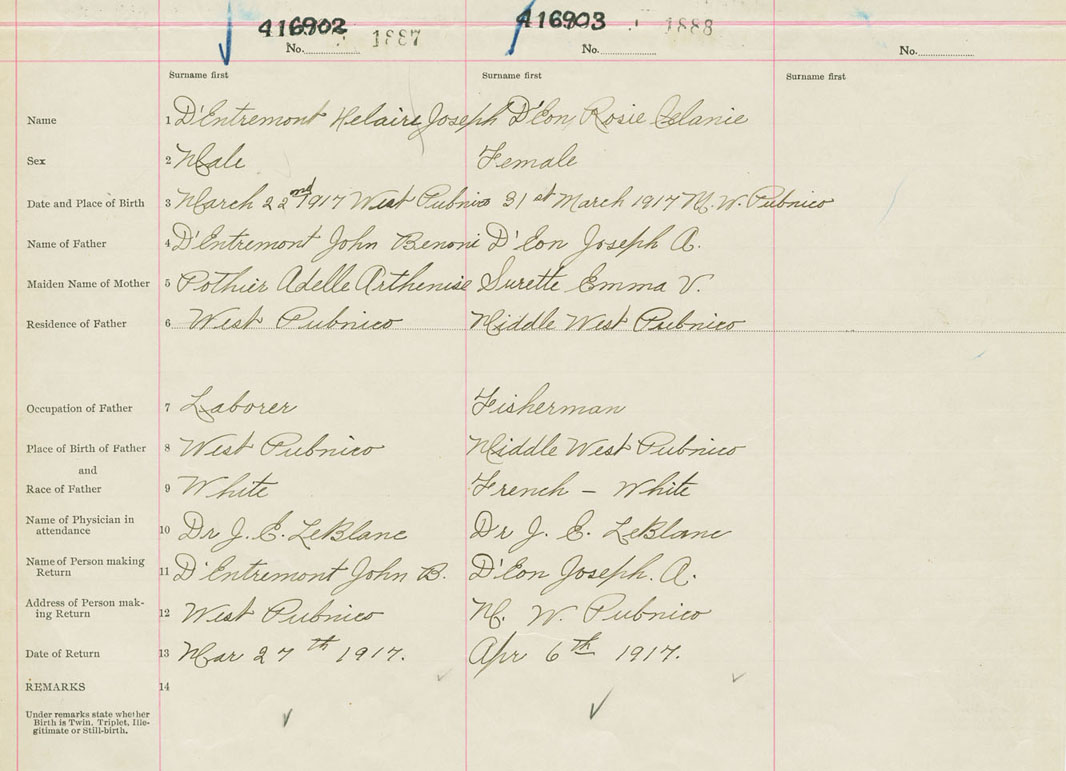 416902 416903
No. 1887 No. 1888 No.
Surname first Surname first Surname first
Name 1 D'Entremont Helaire Joseph D'Eon Rosie Celanie
Sex 2 Male Female
Date and Place of Birth 3 March 22nd 1917 West Pubnico 31st March 1917 M. W. Pubnico
Name of Father 4 D'Entremont John Benoni D'Eon Joseph A.
Maiden Name of Mother 5 Pothier Adelle Arthenise Surette Emma V.
Residence of Father 6 West Pubnico Middle West Pubnico
Occupation of Father 7 Laborer Fisherman
Place of Birth of Father 8 West Pubnico Middle West Pubnico
and
Race of Father 9 White French - White
Name of Physician in
attendance 10 Dr J. E. LeBlanc Dr J. E. LeBlanc
Name of Person making
Return 11 D'Entremont John B. D'Eon Joseph. A.
Address of Person mak-
ing Return 12 West Pubnico M. W. Pubnico
Date of Return 13 Mar 27th 1917. Apr 6th 1917.
REMARKS 14
Under remarks state whether
Birth is Twin, Triplet, Ille-
gitimate or Still-birth.